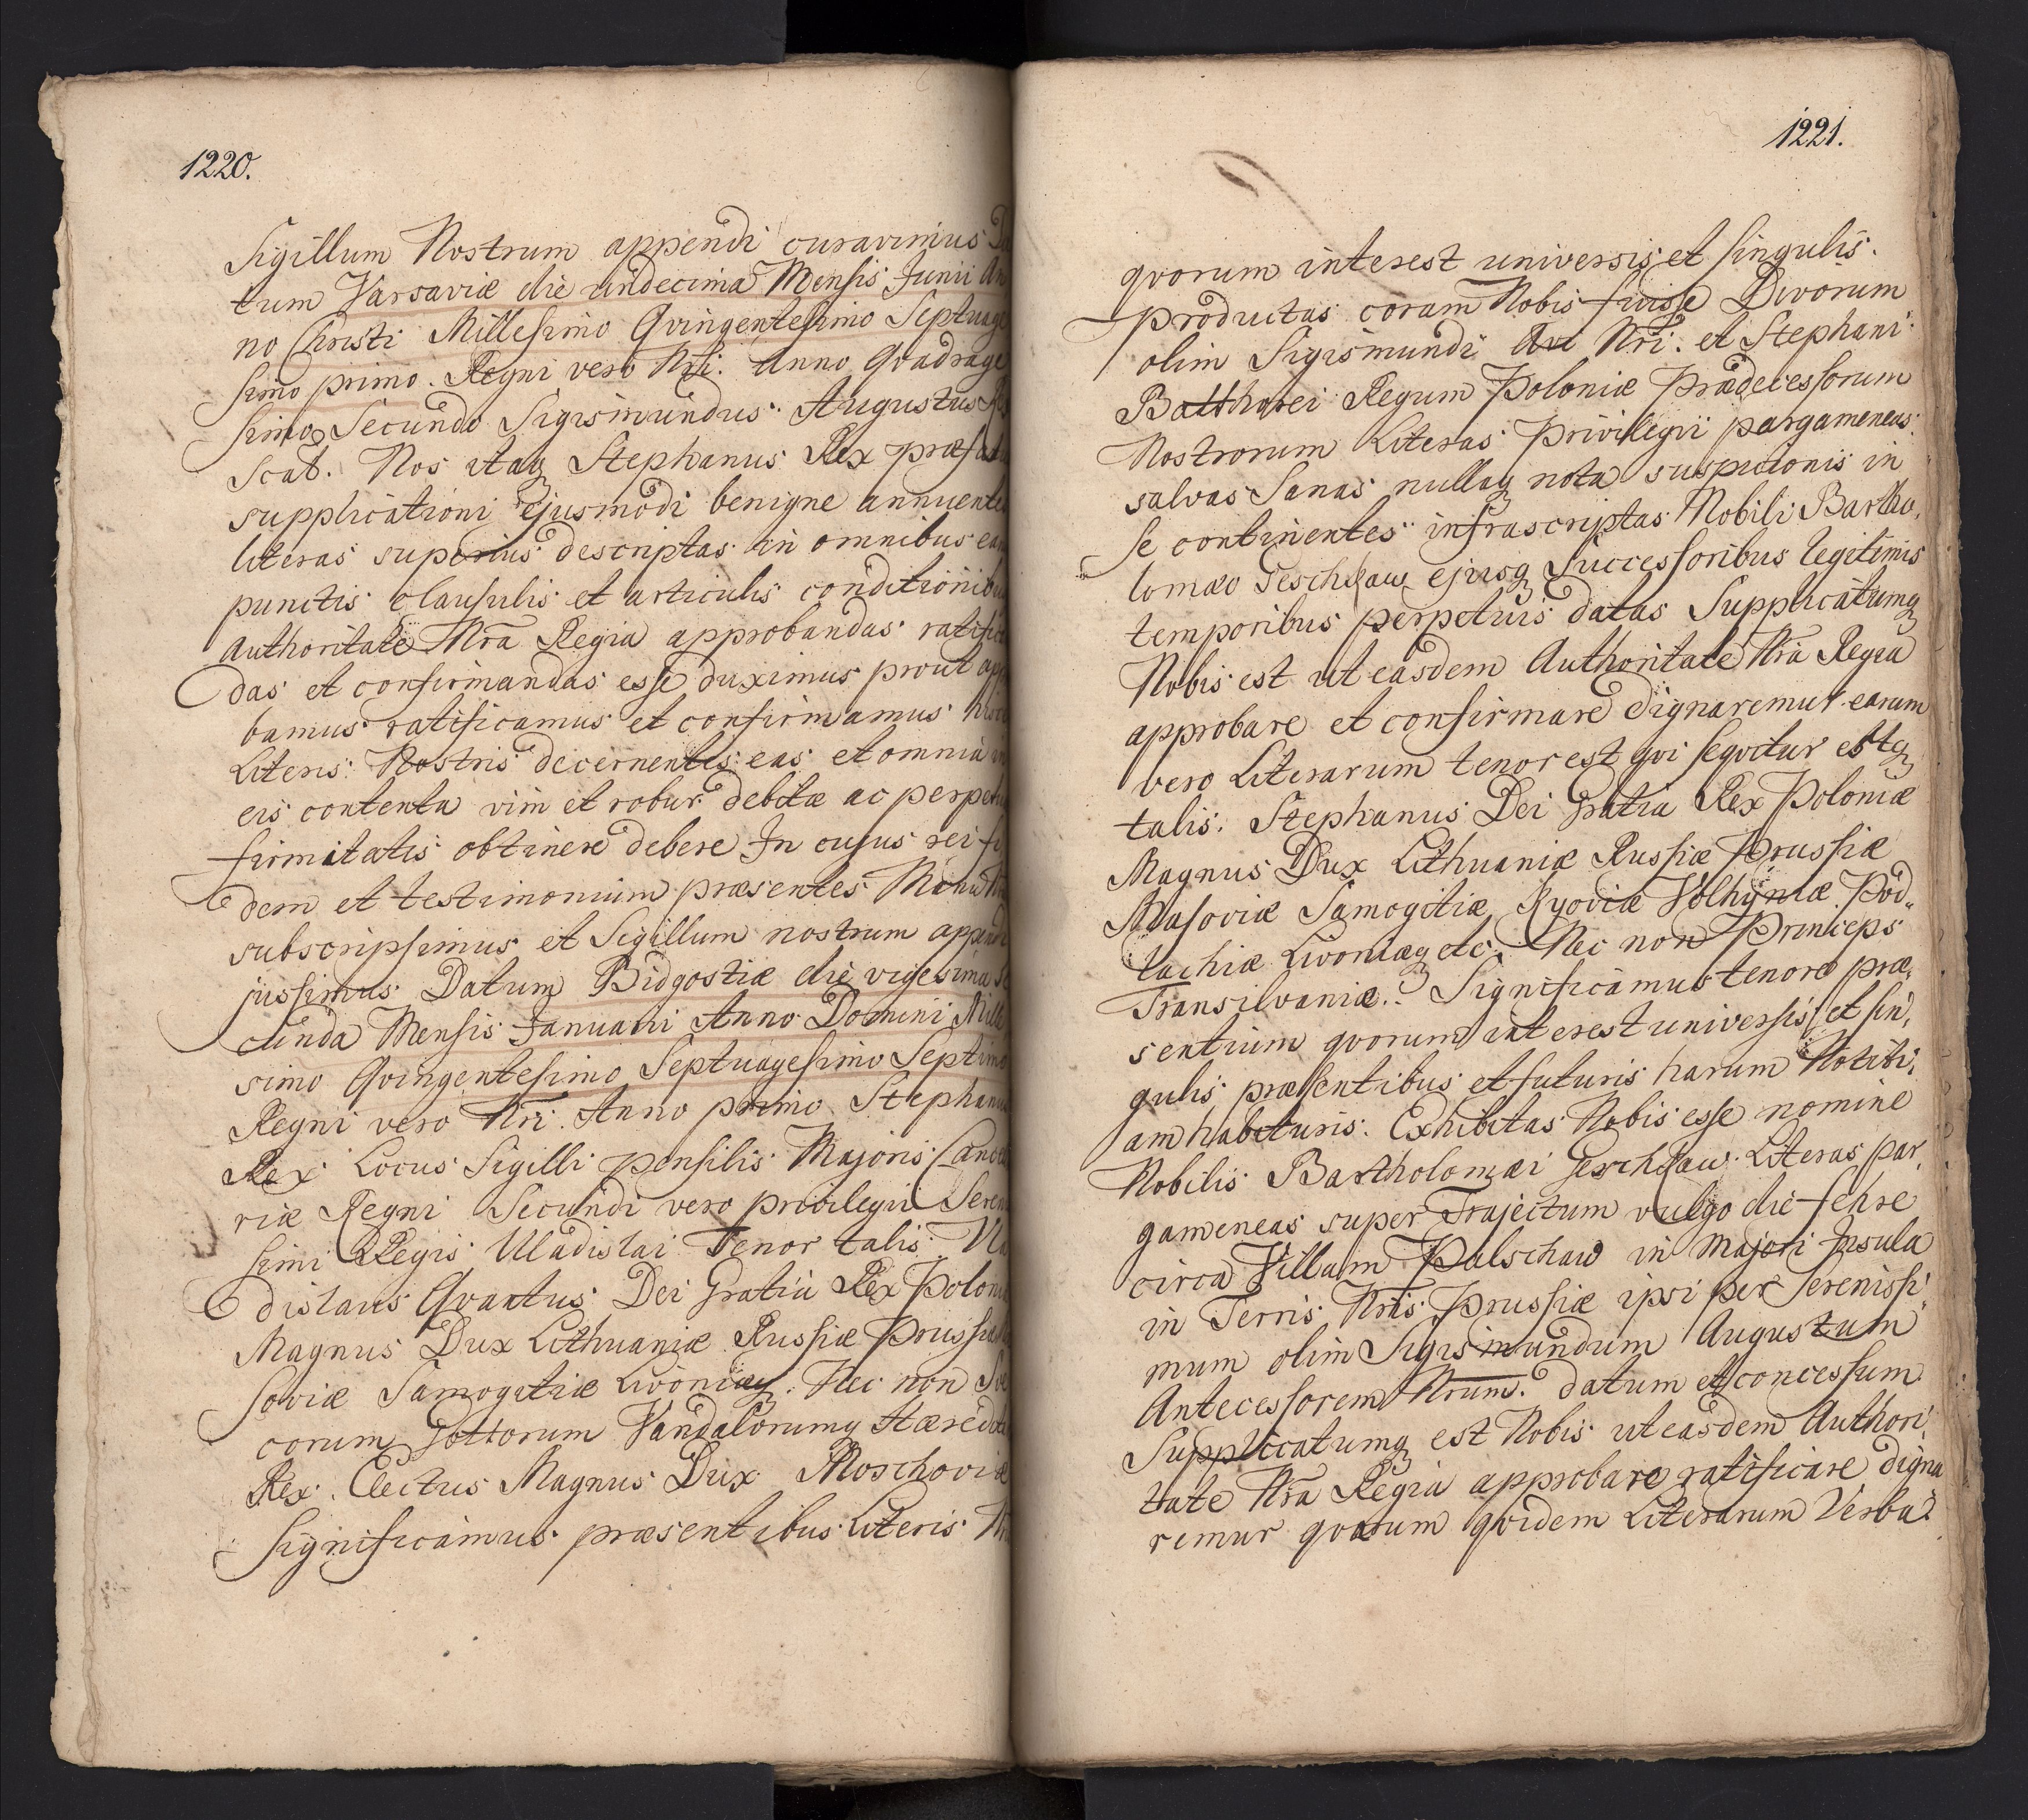 1220.
Sigillum Nostrum appendi curavimus Da
tum Varsaviæ die undecima Mensis Junii An
no Christi Millesimo Qvingentesimo Septuage
simo primo. Regni vero Nri. Anno Qvadrage
simo Secundo Sigismundus Augustus
scab. Nos itaq Stephanus Rex præfat
supplicationi ejusmodi benigne annuente
literas superius descriptas in omnibus ear
punctis clausulis et articulis conditionibu
Authoritate Nrã Regia approbandas ratific
das et confirmandas esse duximus prout app
bamus ratificamus et confirmamus hisce
Literis Nostris decernentes eas et omnia in
eis contenta vim et robur debitæ ac perpetu
firmitatis obtinere debere In cujus rei fi
dem et testimonium præsentes Manu Nra
subscripsimus et Sigillum nostrum appendi
jussimus Datum Bidgostiæ die vigesima Se
cunda Mensis Januarii Anno Domini Mille
simo Qvingentesimo Septuagesimo Septimo
Regni vero Nri. Anno primo Stephanus
Rex Locus Sigilli pensilis Majoris Cancella
riæ Regni Secundi vero privilegii Sereni
simi Regis Uladislai Tenor talis. Vla
dislaus Qvartus Dei Gratia Rex Poloniæ
Magnus Dux Lithuaniæ Russiæ Prussiæ
soviæ Samogitiæ Livoniæq. Nec non Sve
corum Gottorum Vandalorumq Hæredita
Rex. Electus Magnus Dux Moschoviæ
Significamus præsentibus Literis Nr
1221.
qvorum interest universis et singulis.
productas coram Nobis fuisse Divorum
olim Sigismundi Avi Nri. et Stephani
Batthorei Regum Poloniæ Prædecessorum
Nostrorum Literas Privilegii pargameneas
salvas Sanas nullaq nota suspicionis in
se continentes infrascriptas Nobili Bartho,
lomæo Geschkaw ejusq Successoribus legitimis
temporibus perpetuis datas Supplicatumq
Nobis est ut easdem Authoritate Nrã Regia
approbare et confirmare dignaremur. earum
vero Literarum tenor est qvi seqvitur estq
talis. Stephanus Dei Gratia Rex Poloniæ
Magnus Dux Lithuaniæ Russiæ Prussiæ
Masoviæ Samogitiæ Kyoviæ Volhyniæ Pod„
lachiæ Livoniæq etc. Nec non Princeps
Transilvaniæ. Significamus tenore præ,
sentium qvorum interest universis et sin,
gulis præsentibus et futuris harum Notiti,
am habituris. Exhibitas Nobis esse nomine
Nobilis Bartholomæi Geschkaw Literas par,
gameneas super Trajectum vulgo die fehre
circa Villam Palschaw in Majori Insula
in Terris Nris Prussiæ ipsi per Serenissi„
mum olim Sigismundum Augustum
Antecessorem Nrum. datum et concessum
Supplicatumq est Nobis ut easdem Authori,
tate Nrã Regia approbare ratificare digna
remur qvarum qvidem Literarum Verba